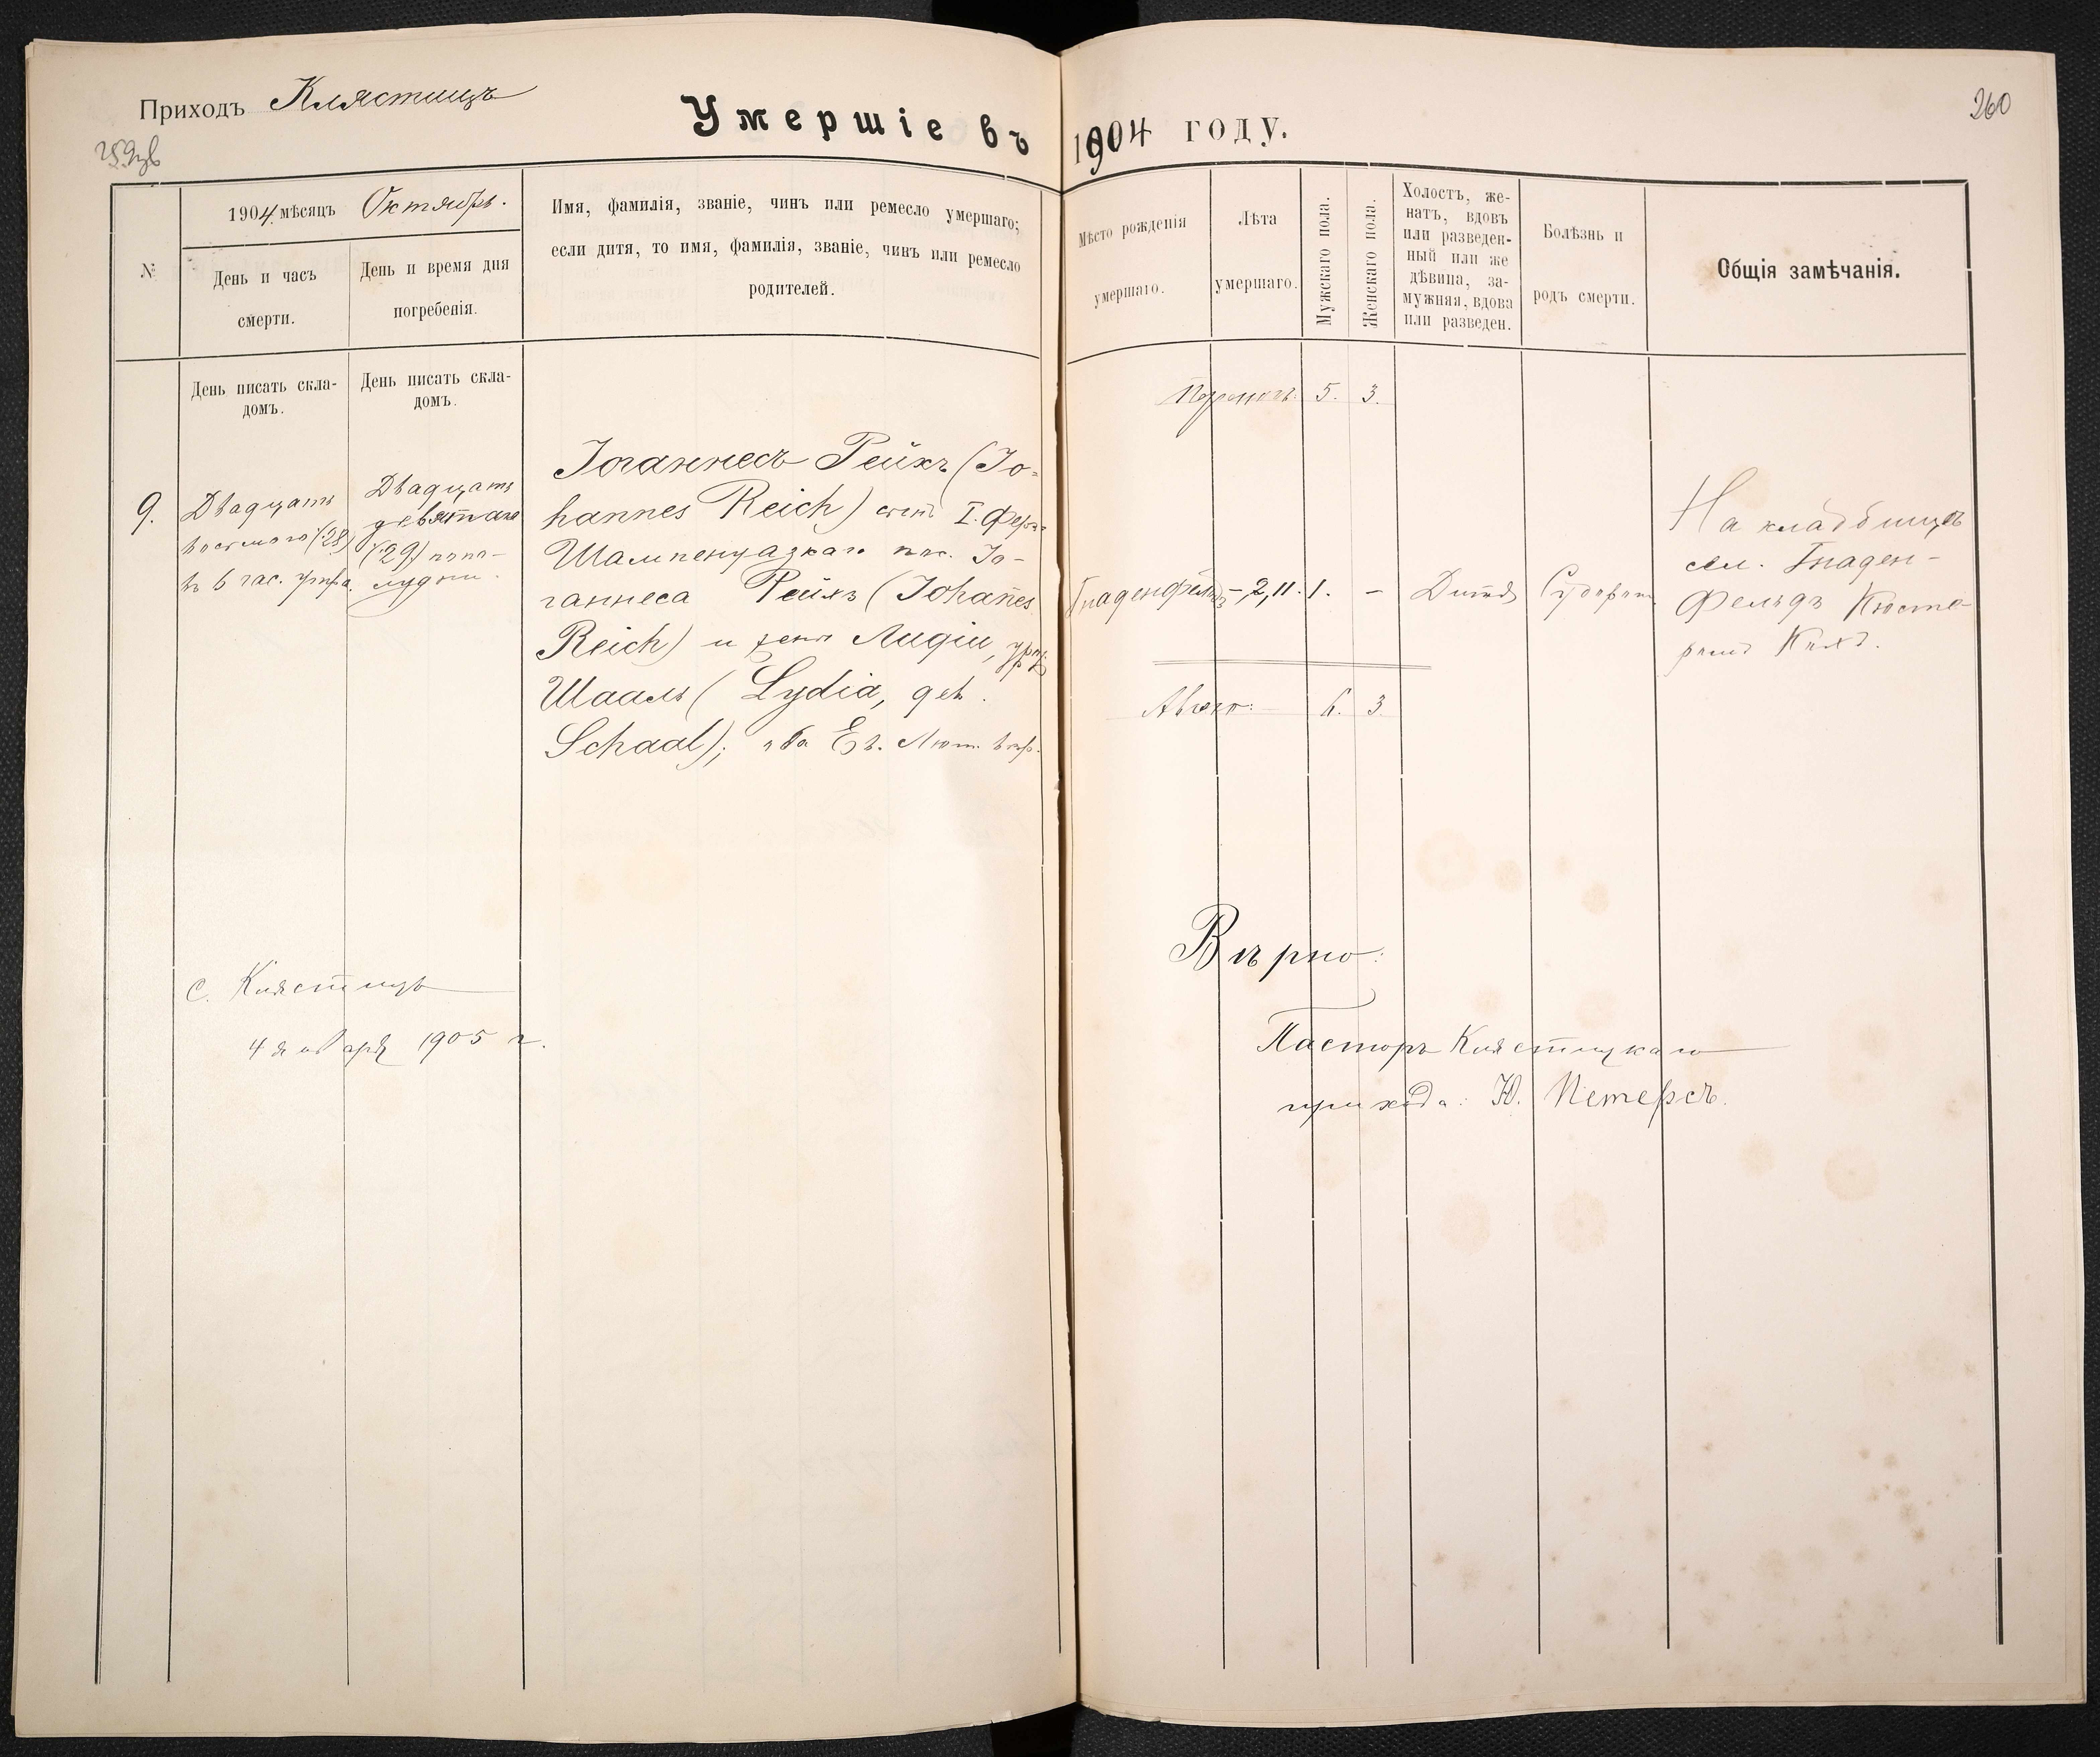 Приходъ Клястицъ
Умершіе въ 1904 году.
260
259об
№
1904 мѣсяцъ Октябрь.
День и часъ
смерти.
День и время дня
погребенія.
Имя, фамилія, званіе, чинъ или ремесло умершаго;
если дитя, то имя, фамилія, званіе, чинъ или ремесло
родителей.
Мѣсто рожденія
умершаго.
Лѣта
умершаго.
Мужскаго пола.
Женскаго пола.
Холостъ, же-
натъ, вдовъ
или разведен-
ный или же
дѣвица, за-
мужняя, вдова
или разведен.
Болѣзнь и
родъ смерти.
Общія замѣчанія.
День писать скла-
домъ.
День писать скла-
домъ.
Переносъ: 5. 3.
9.
Двадцать
восьмого (28)
въ 6 час. утра.
Двадцать
девятаго
(29) попо-
лудни.
Іоганнесъ Рейхъ (Jo-
hannes Reich) сынъ I. Фере-
Шампенуазкаго пос. Іо-
ганнеса Рейхъ (Johañes
Reich) и жены Лидіи, урож.
Шааль (Lydia, geb.
Schaal); оба Ев. Лют. вѣр.
Гнаденфельдъ -,2,11. 1. - Дитя Судороги
На кладбищѣ
сел. Гнаден-
фельдъ Кюсте-
ромъ Кохъ.
Август: 6. 3.
с. Клястицъ
4 января 1905 г.
Вѣрно:
Пасторъ Клястицкаго
прихода: Ю. Петерсъ.